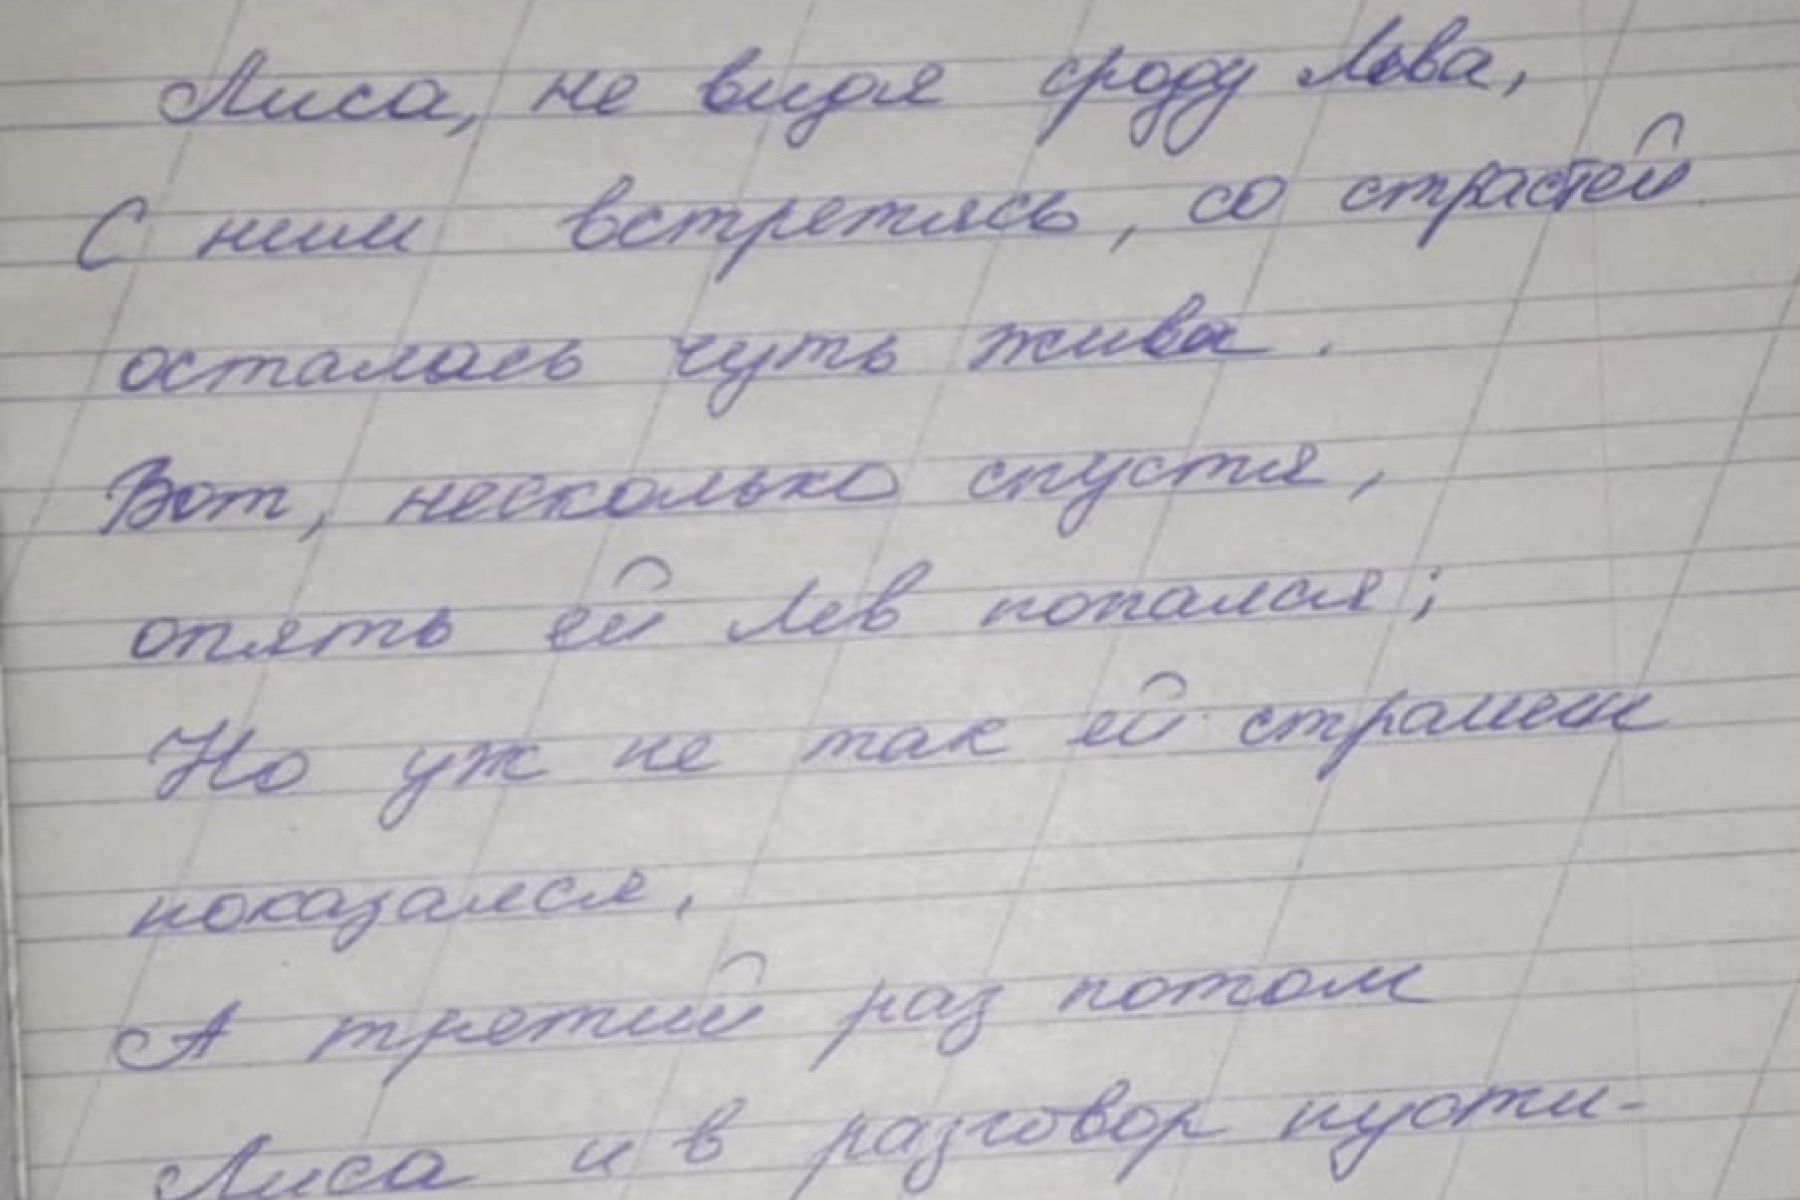 Лиса, не видя сроду Льва,
С ним встретясь, со страстей
осталась чуть жива.
Вот, несколько спустя,
опять ей Лев попался;
Но уж не так ей страшен
показался.
А третий раз потом
Лиса и в разговор пусти-